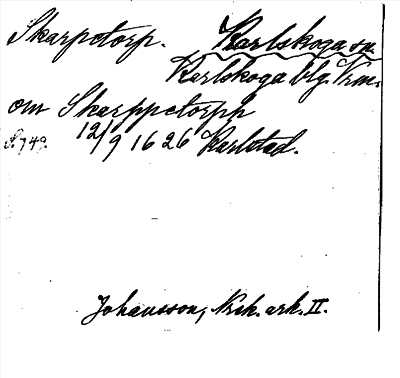 Skarpetorp. Karlskoga sn.
Karlskoga blg. Vrm.
om Skarppetorph
S. 749. 12/9 1626 Karlstad.
Johansson, Krk. ark. II.